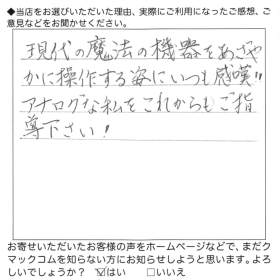 ◆当店をお選びいただいた理由、実際にご利用になったご感想、ご
意見などをお聞かせください。
現代の魔法の機器をあざや
かに操作する姿にいつも感嘆!!
アナログな私をこれからもご指
導下さい!
お寄せいただいたお客様の声をホームページなどで、まだク
マックコムを知らない方にお知らせしようと思います。よろ
しいでしょうか? ☑はい □いいえ